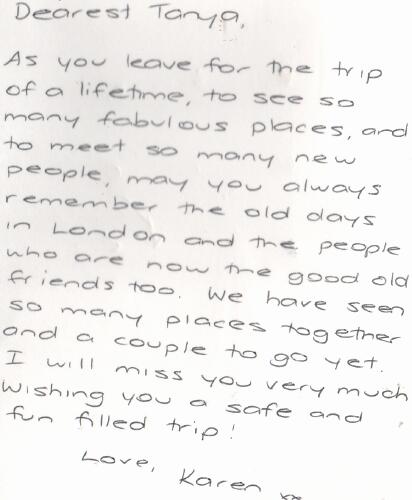 Dearest Tanya,
As you leave for the trip
of a lifetime, to see so
many fabulous places, and
to meet so many new
people, may you always
remember the old days
in London and the people
who are now the good old
friends too. We have seen
so many places together
and a couple to go yet.
I will miss you very much
Wishing you a safe and
fun filled trip!
Love, Karen xx